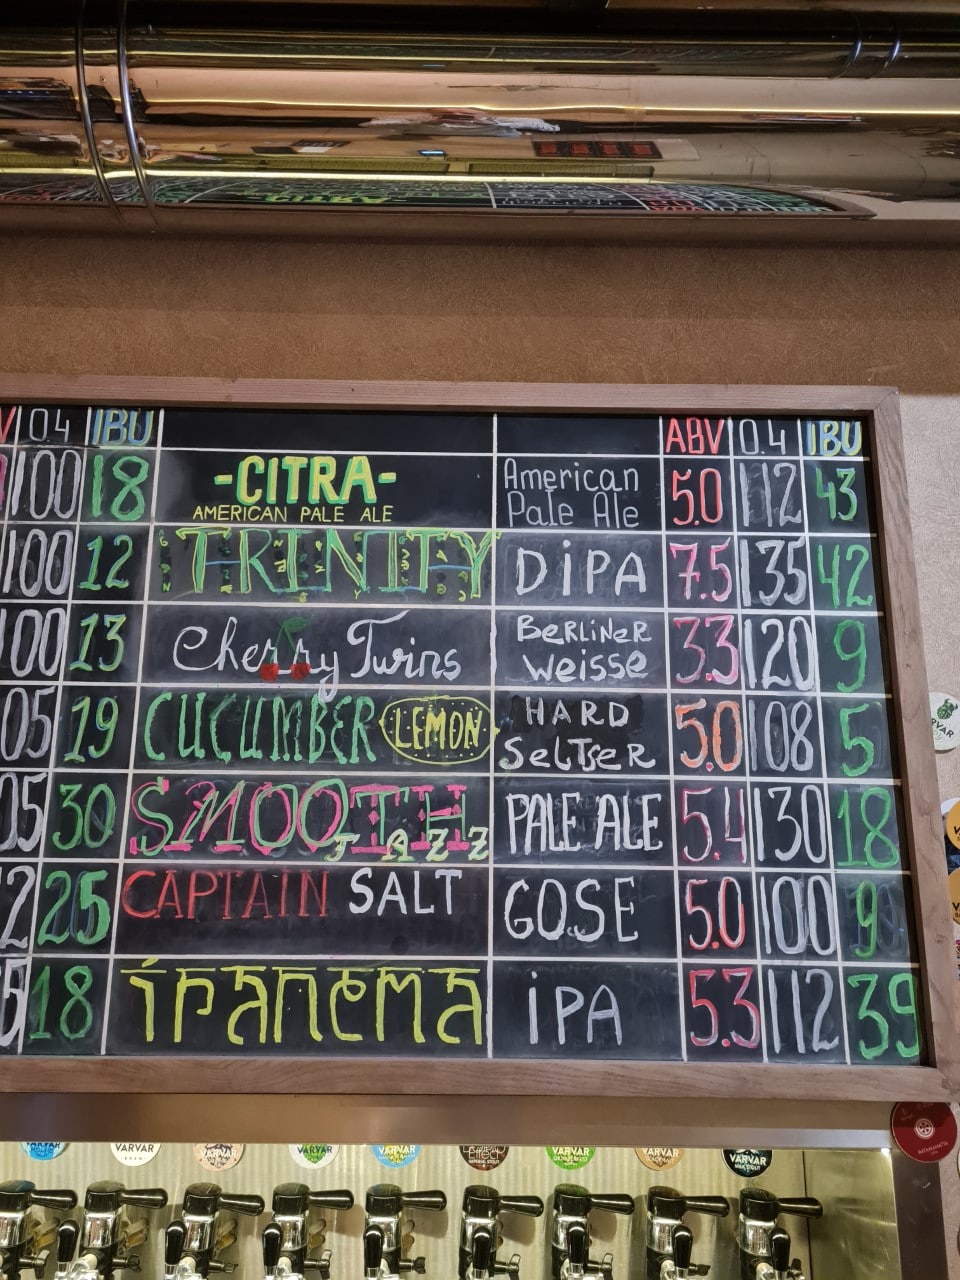 V 0.4 IBU ABV 0.4 IBU
100 18 -CITRA- American 5.0 112 43
AMERICAN PALE ALE Pale Ale
100 12 TRINITY DiPA 7.5 135 42
100 13 Cherry Twins BERLINER 3.3 120 9
weisse
05 19 CUCUMBER LEMON HARD 5.0 108 5
SeLTseR
05 30 SMOOTH PALE ALE 5.4 130 18
JAZZ
2 25 CAPTAIN SALT GOSE 5.0 100 9
5 18 iPANEMA iPA 5.3 112 39
VARVAR
VARVAR
VARVAR
VARVAR
VARVAR
IMPERIAL STOUT
VARVAR
VARVAR
VARVAR
MILK STOUT